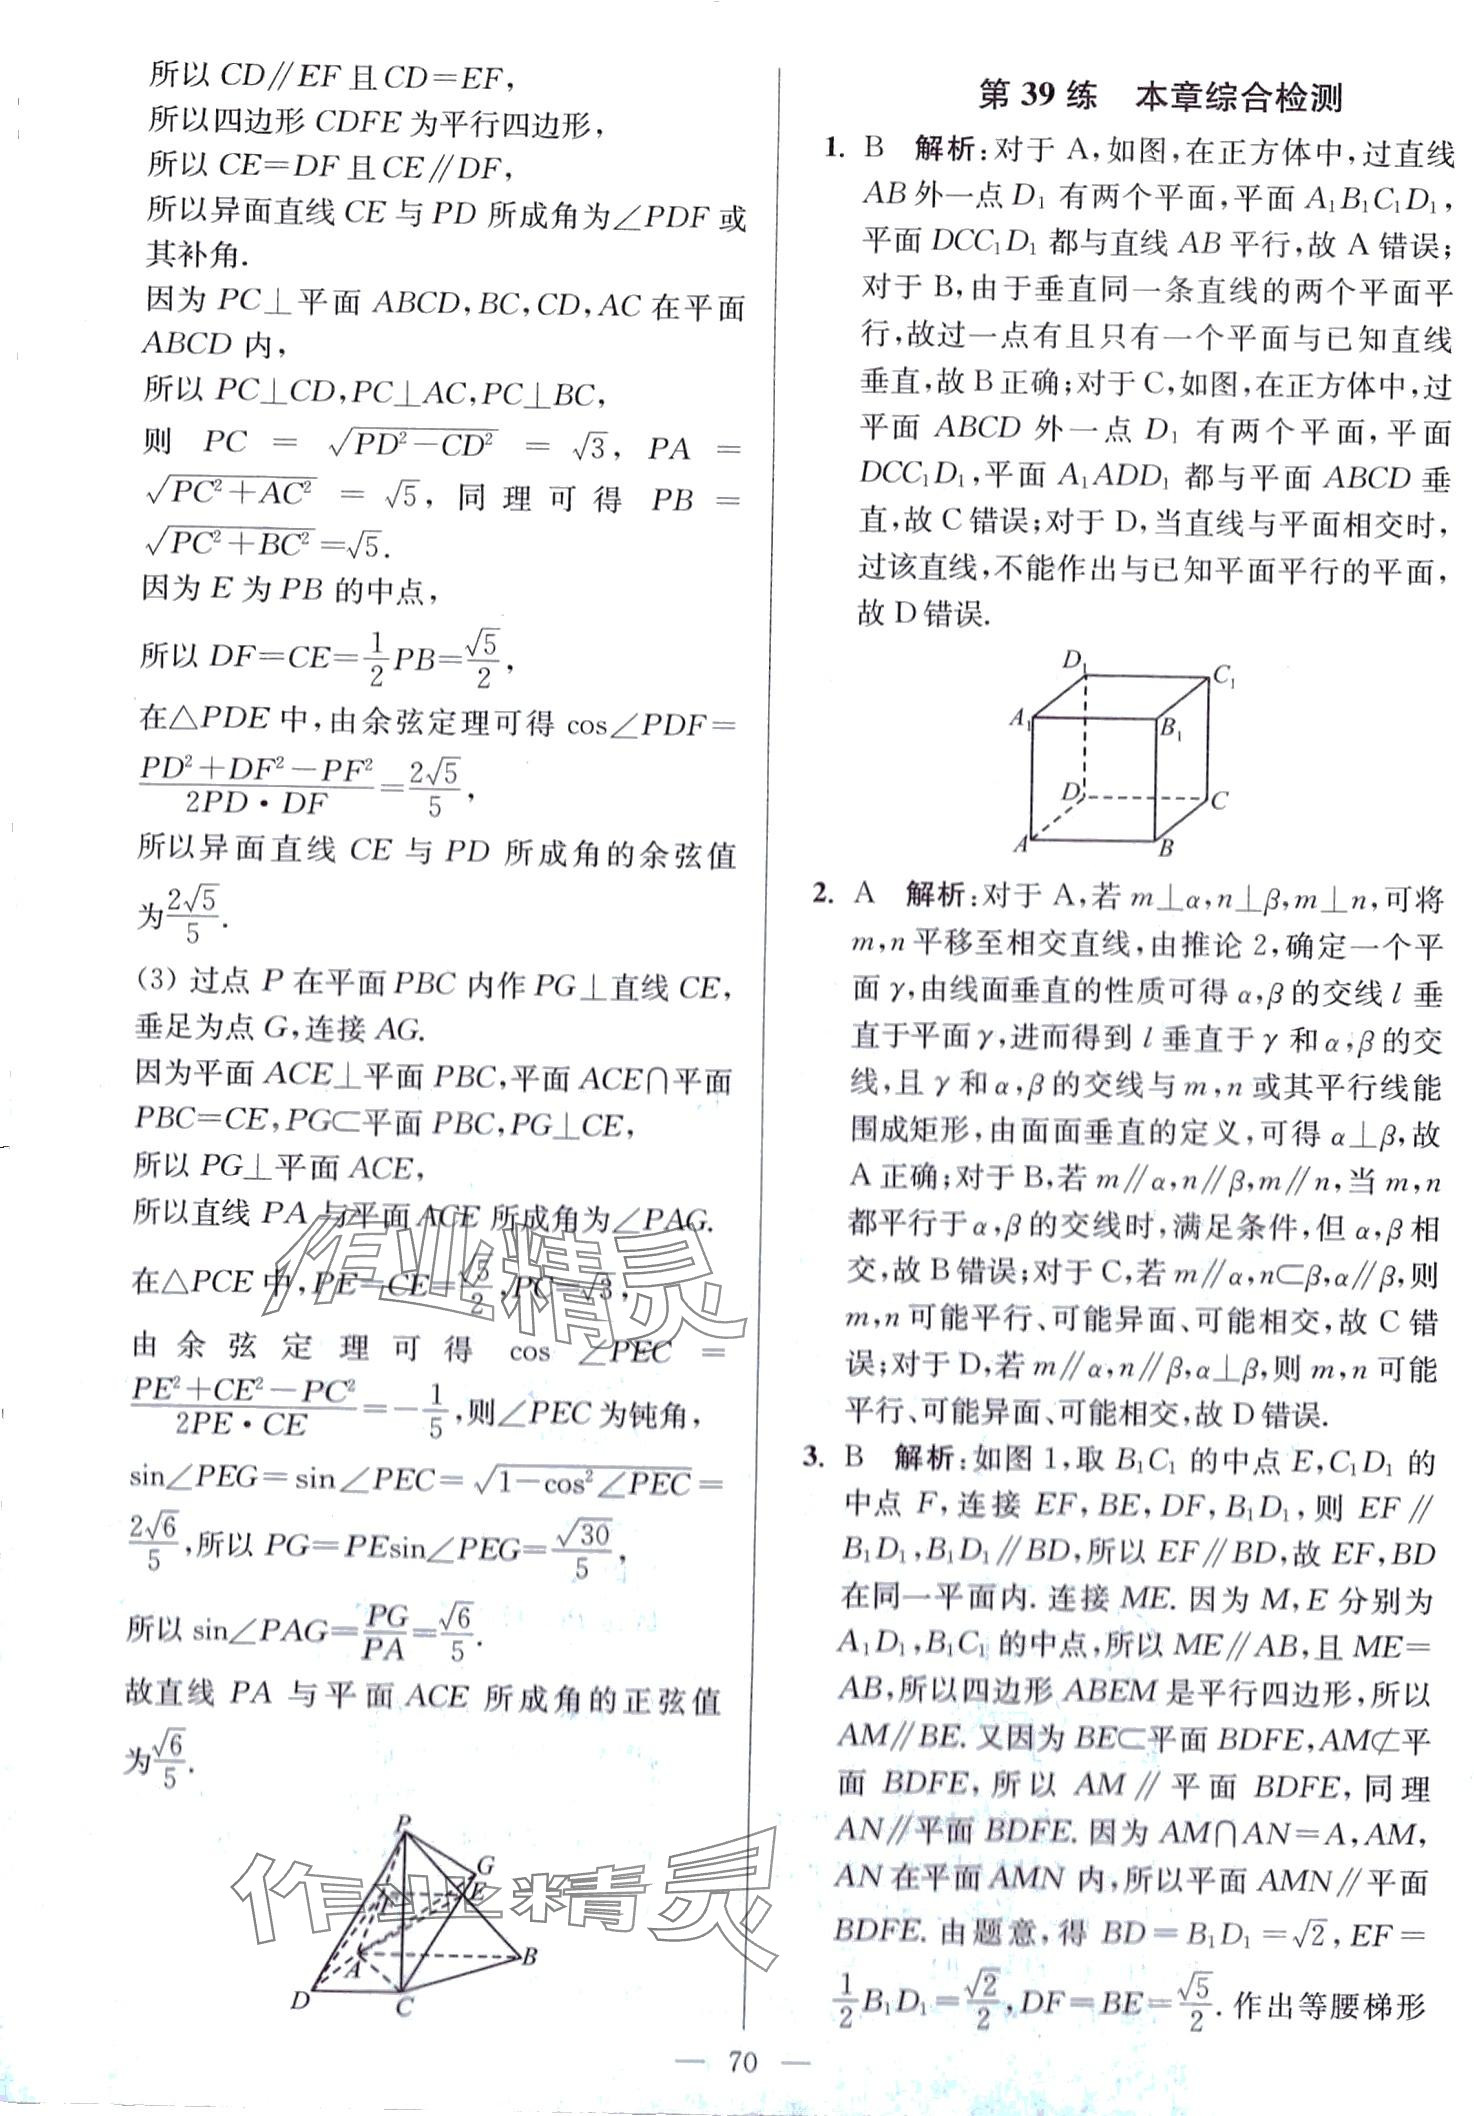 所以 CD∥EF 且 CD=EF,
所以四边形 CDFE 为平行四边形,
所以 CE=DF 且 CE∥DF,
所以异面直线 CE 与 PD 所成角为∠PDF 或
其补角.
因为 PC⊥平面 ABCD,BC,CD,AC 在平面
ABCD 内,
所以 PC⊥CD,PC⊥AC,PC⊥BC,
则 PC = √(PD²−CD²) = √3, PA =
√(PC²+AC²) = √5, 同理可得 PB =
√(PC²+BC²)=√5.
因为 E 为 PB 的中点,
所以 DF=CE=1/2 PB=√5/2,
在△PDE 中,由余弦定理可得 cos∠PDF=
(PD²+DF²−PF²)/(2PD·DF)=2√5/5,
所以异面直线 CE 与 PD 所成角的余弦值
为2√5/5.
(3) 过点 P 在平面 PBC 内作 PG⊥直线 CE,
垂足为点 G,连接 AG.
因为平面 ACE⊥平面 PBC,平面 ACE∩平面
PBC=CE,PG⊂平面 PBC,PG⊥CE,
所以 PG⊥平面 ACE,
所以直线 PA 与平面 ACE 所成角为∠PAG.
在△PCE 中,PE=CE=√5/2,PC=√3,
由余弦定理可得 cos ∠PEC =
(PE²+CE²−PC²)/(2PE·CE)=−1/5,则∠PEC 为钝角,
sin∠PEG=sin∠PEC=√(1−cos²∠PEC)=
2√6/5,所以 PG=PEsin∠PEG=√30/5,
所以 sin∠PAG=PG/PA=√6/5.
故直线 PA 与平面 ACE 所成角的正弦值
为√6/5.
P
G
E
F
A
B
D
C
第 39 练 本章综合检测
1. B 解析:对于 A,如图,在正方体中,过直线
AB 外一点 D₁ 有两个平面,平面 A₁B₁C₁D₁,
平面 DCC₁D₁ 都与直线 AB 平行,故 A 错误;
对于 B,由于垂直同一条直线的两个平面平
行,故过一点有且只有一个平面与已知直线
垂直,故 B 正确;对于 C,如图,在正方体中,过
平面 ABCD 外一点 D₁ 有两个平面,平面
DCC₁D₁,平面 A₁ADD₁ 都与平面 ABCD 垂
直,故 C 错误;对于 D,当直线与平面相交时,
过该直线,不能作出与已知平面平行的平面,
故 D 错误.
D₁
C₁
A₁
B₁
D
C
A
B
2. A 解析:对于 A,若 m⊥α,n⊥β,m⊥n,可将
m,n 平移至相交直线,由推论 2,确定一个平
面 γ,由线面垂直的性质可得 α,β 的交线 l 垂
直于平面 γ,进而得到 l 垂直于 γ 和 α,β 的交
线,且 γ 和 α,β 的交线与 m,n 或其平行线能
围成矩形,由面面垂直的定义,可得 α⊥β,故
A 正确;对于 B,若 m∥α,n∥β,m∥n,当 m,n
都平行于 α,β 的交线时,满足条件,但 α,β 相
交,故 B 错误;对于 C,若 m∥α,n⊂β,α∥β,则
m,n 可能平行、可能异面、可能相交,故 C 错
误;对于 D,若 m∥α,n∥β,α⊥β,则 m,n 可能
平行、可能异面、可能相交,故 D 错误.
3. B 解析:如图 1,取 B₁C₁ 的中点 E,C₁D₁ 的
中点 F,连接 EF,BE,DF,B₁D₁,则 EF∥
B₁D₁,B₁D₁∥BD,所以 EF∥BD,故 EF,BD
在同一平面内.连接 ME.因为 M,E 分别为
A₁D₁,B₁C₁ 的中点,所以 ME∥AB,且 ME=
AB,所以四边形 ABEM 是平行四边形,所以
AM∥BE.又因为 BE⊂平面 BDFE,AM⊄平
面 BDFE,所以 AM∥平面 BDFE,同理
AN∥平面 BDFE.因为 AM∩AN=A,AM,
AN 在平面 AMN 内,所以平面 AMN∥平面
BDFE.由题意,得 BD=B₁D₁=√2,EF=
1/2 B₁D₁=√2/2,DF=BE=√5/2.作出等腰梯形
— 70 —
作业精灵
作业精灵